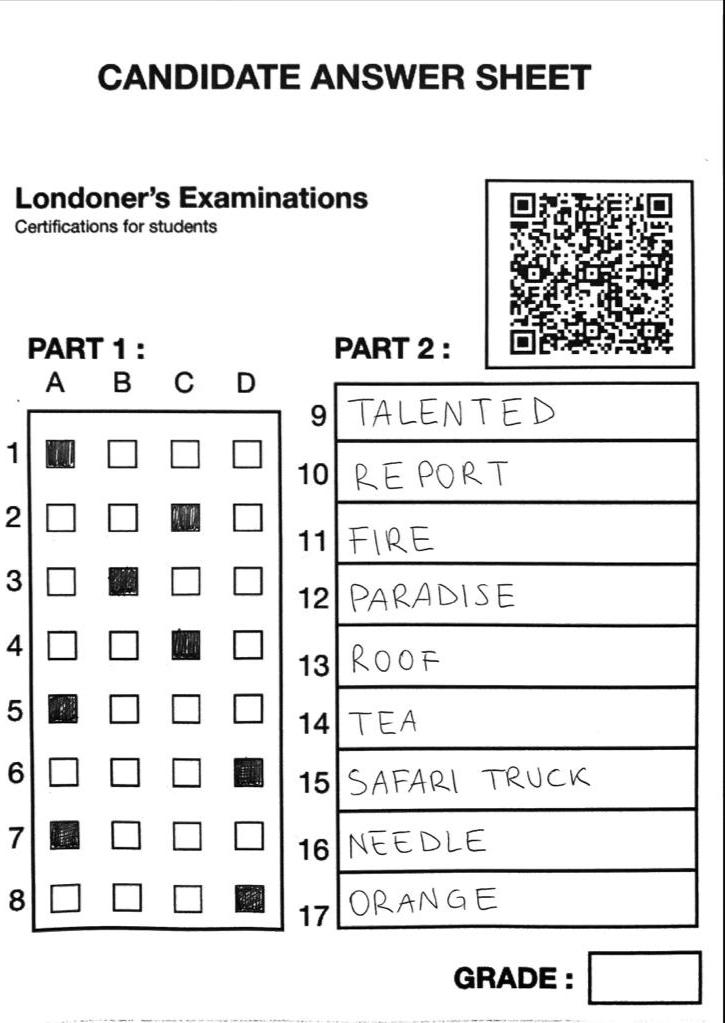 CANDIDATE ANSWER SHEET
Londoner's Examinations
Certifications for students
PART 1 :
A B C D
1
2
3
4
5
6
7
8
PART 2 :
9 TALENTED
10 REPORT
11 FIRE
12 PARADISE
13 ROOF
14 TEA
15 SAFARI TRUCK
16 NEEDLE
17 ORANGE
GRADE :